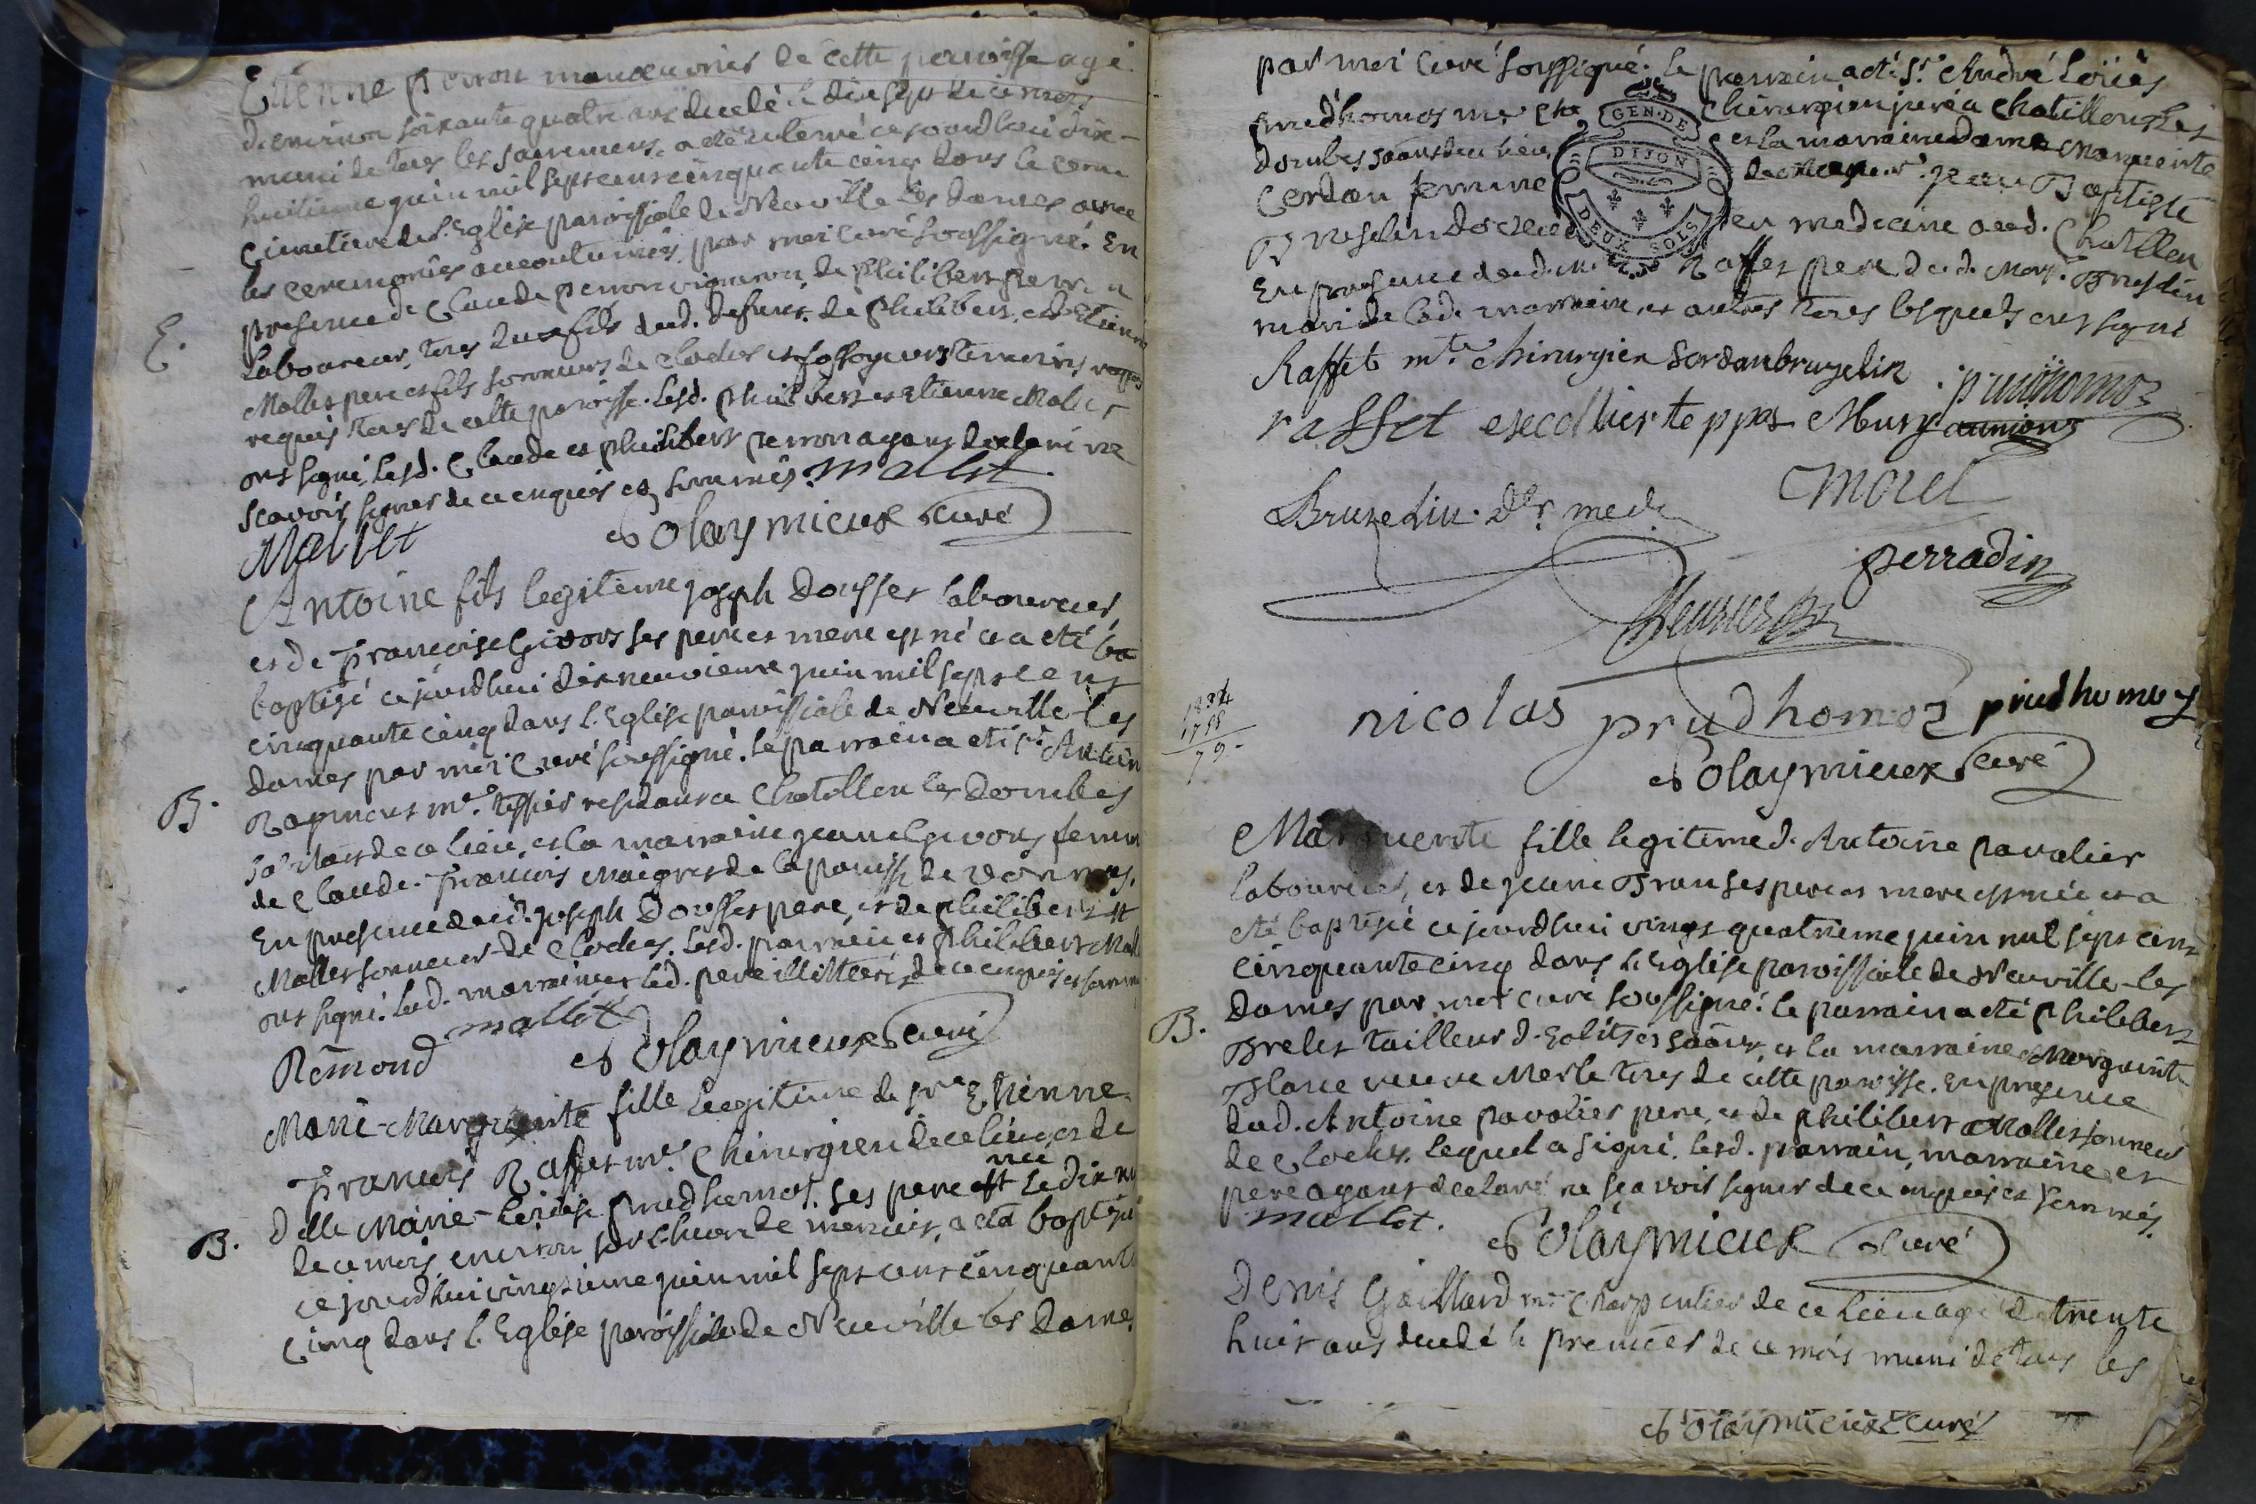 Etienne perron manoeuvrier de cette parroisse agé
d'environ soixante quatre ans decedé le dix sept de ce mois
muni de tous les sacremens, a été enterré ce jourdhui dix-
huitieme juin mil sept cent cinquante cinq dans le
cimetiere de l'Eglise paroissiale de Neuville les dames avec
les ceremonies accoutumées, par moi curé soussigné. En
presence de Claude perron vigneron de philibert perron
E.
laboureur, tous deux fils dud. defunt, de philibert, et Etienne
Mallet pere et fils sonneurs de cloches et fossoyeurs temoins
requis tous de cette paroisse. Lesd. philibert et Etienne Mallet
ont signé, lesd. Claude et philibert perron ayant declaré ne
scavoir signer de ce enquis et sommés. mallet
Mallet Solaymieux curé
Antoine fils legitime joseph Dousset laboureur
et de francoise Givors ses pere et mere est né et a été ba
baptisé ce jourdhui dix neuvieme juin mil sept cent
cinquante cinq dans l'Eglise paroissiale de Neuville les
dames par moi Curé soussigné. le parrain a eté sr. Antoin
B.
me. tissier residant a Chatillon les Dombes
de ce lieu, et la marraine jeanne Givors femme
de Claude-francois Maigret de la paroisse de Vonnas.
En presence dud. joseph Dousset pere, et de philibert
Mallet sonneur de Cloches. lesd. parrain et philibert Mall
ont signé. lad. marraine et led. pere illitterés de ce enquis et somm
Rémond mallet Solaymieux Curé
Marie-Marguerite fille legitime de sr. Etienne
francois Raffet me. Chirurgien de ce lieu, et de
née
Delle Marie-Prudhomos. ses pere est le dix ne
B.
de ce mois environ sur l'heure de a eté baptisé
ce jourdhui vingtieme juin mil sept cent cinquante
cinq dans l'Eglise paroissiale de Neuville les dames
par moi curé soussigné. le parrain a eté Sr. André Loüis
prudhomos me Chirurgien juré a Chatillon les
GEN. DE
DIJON
DEUX SOLS
dombes de ce lieu et la marraine dame Marguerite
Cerdon femme de jean Baptiste
Bruselin docteur en medecine aud. Chatillon
En presence dud. Raffet pere dud. Bruselin
mari de lad. marraine, et autres tous lesquels ont signé
Raffet mtre chirurgien Sordonbruzelin prudhomoz
rasset
Bruzelin. dr. med. Morel
perradin
1834
1755
79
nicolas prudhomoz prudhomoz
Solaymieux Curé
Marguerite fille legitime d. Antoine pavalier
laboureur, et de jeanne Bran ses pere et mere est née et a
eté baptisée ce jourdhui vingt quatrieme juin mil sept cent
cinquante cinq dans l'Eglise paroissiale de Neuville-les
dames par moi curé soussigné. le parrain a eté philibert
B.
Brelet tailleur d'habits et la marraine Marguerite
Blanc veuve Merle tous de cette paroisse. En presence
dud. Antoine pavalier pere, et de philibert Mallet sonneur
de Cloches. lequel a signé. lesd. parrain, marraine et
pere ayant declaré ne scavoir signer de ce enquis et sommés.
mallet. Solaymieux curé
Denis Gaillard me Charpentier de ce lieu agé de trente
huit ans decedé le premier de ce mois muni de tous les
Solaymieux curé